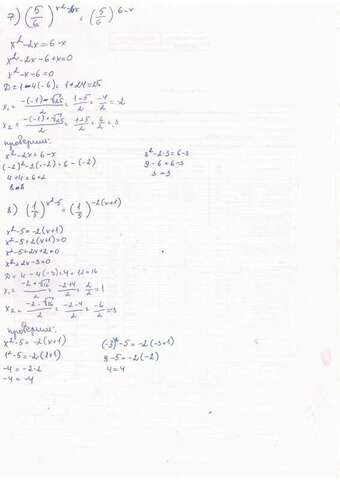 7) (5/6)^(x²-2x) = (5/6)^(6-x)
x²-2x=6-x
x²-2x-6+x=0
x²-x-6=0
D=1-4(-6)=1+24=25
x₁=(-(-1)-√25)/2=(1-5)/2=-4/2=-2
x₂=(-(-1)+√25)/2=(1+5)/2=6/2=3
проверим:
x²-2x=6-x 3²-2·3=6-3
(-2)²-2(-2)=6-(-2) 9-6=6-3
4+4=6+2 3=3
8=8
8) (1/3)^(x²-5) = (1/3)^(-2(x+1))
x²-5=-2(x+1)
x²-5+2(x+1)=0
x²-5+2x+2=0
x²+2x-3=0
D=4-4(-3)=4+12=16
x₁=(-2+√16)/2=(-2+4)/2=2/2=1
x₂=(-2-√16)/2=(-2-4)/2=-6/2=-3
проверим:
x²-5=-2(x+1) (-3)²-5=-2(-3+1)
1²-5=-2(1+1) 9-5=-2(-2)
-4=-2·2 4=4
-4=-4